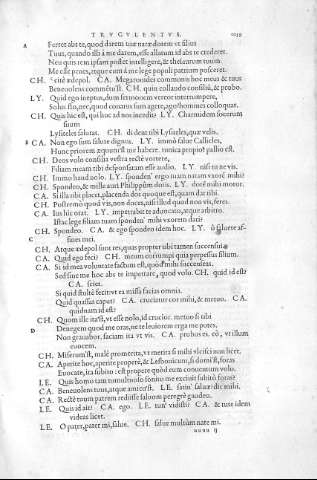 TRVGVLENTVS. 1039
A Ferret abs te, quod darem tuæ natæ dotem ut filius
Tuus, quando illi à me darem, esse allatam id abs te crederet.
Neu quis rem ipsam posset intelligere, & thesaurum tuum
Me esse penes, atque eum à me lege populi patrium posceret.
CH. Scitè ædepol. CA. Megaronides communis hoc meus & tuus
Beneuolens commẽtu'st. CH. quin collaudo consiliũ, & probo.
LY. Quid ego ineptus, dum sermonem uereor interrumpere,
Solus sto, nec, quod conatus sum agere, ago? hominẽ colloquar.
CH. Quis hic est, qui huc ad nos incedit? LY. Charmidem socerum
suum
Lysiteles salutat. CH. dij dent tibi Lysiteles, quæ uelis.
B CA. Non ego sum salute dignus. LY. immò salue Callicles,
Hunc priorem æquom'st me habere. tunica propior pallio est.
CH. Deos uolo consilia uostra rectè uortere.
Filiam meam tibi desponsatam esse audio. LY. nisi tu neuis.
CH. Immo haud nolo. LY. sponden' ergo tuam natam uxorẽ mihi?
CH. Spondeo, & mille auri Philippûm dotis. LY. dotẽ nihil moror.
CA. Si illa tibi placet, placenda dos quoque est, quam dat tibi.
CH. Postremò quod uis, non duces, nisi illud quod non uis, feres.
CA. Ius hic orat. LY. impetrabit te aduocato, atque arbitro.
Istac lege filiam tuam sponden' mihi uxorem dari?
CH. Spondeo. CA. & ego spondeo idem hoc. LY. ô saluete af-
C fines mei.
CH. Atque ædepol sunt res, quas propter tibi tamen succensui.
CA. Quid ego feci? CH. meum corrumpi quia perpessus filium.
CA. Si id mea uoluntate factum est, quod mihi succenseas.
Sed sine me hoc abs te impetrare, quod uolo. CH. quid id est?
CA. scies.
Si quid stultè fecit, ut ea missa facias omnia.
Quid quassas caput? CA. cruciatur cor mihi, & metuo. CA.
quidnam id est?
CH. Quom ille ita'st, ut esse nolo, id crucior. metuo si tibi
D Denegem quod me oras, ne te leuiorem erga me putes.
Non grauabor. faciam ita ut uis. CA. probus es. eo, ut illum
euocem.
CH. Miserum'st, malè promerita, ut merita si mihi ulcisci non licet.
CA. Aperite hoc, aperite properè, & Lesbonicum, si domi'st, foras
Euocate, ita subitò: est properè quòd eum conuentum uolo.
LE. Quis homo tam tumultuoso sonitu me exciuit subitò foras?
CA. Beneuolens tuus, atque amicu'st. LE. satin' salue? dic mihi.
CA. Rectè tuum patrem redisse saluom peregrè gaudeo.
LE. Quis id ait? CA. ego. LE. tun' uidisti? CA. & tute idem
uideas licet.
LE. O pater, pater mi, salue. CH. salue multùm nate mi.